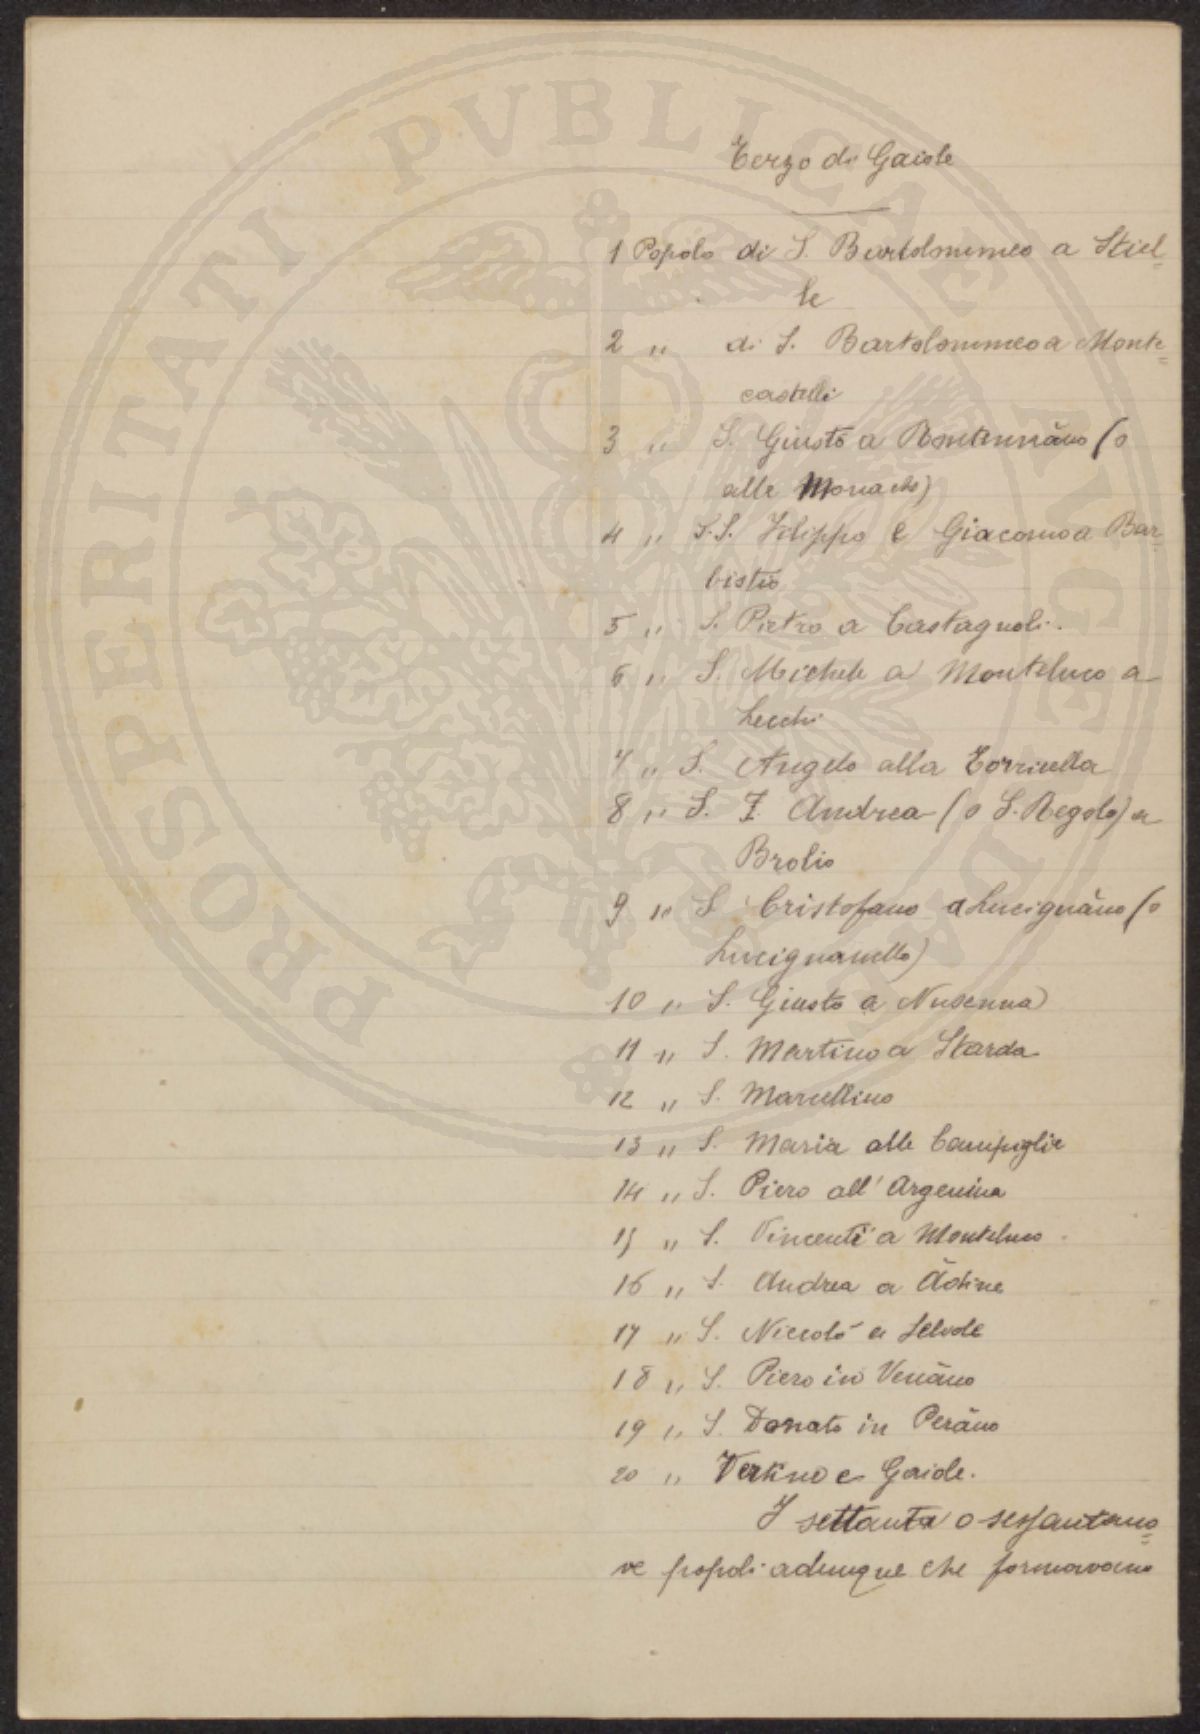 PROSPERITATI PVBLICAE AVGENDAE
Terzo di Gaiole
1 Popolo di S. Bartolommeo a Stiel=
le
2 " di S. Bartolommeo a Monte=
castelli
3 " S. Giusto a Rentennāno (o
alle Monache)
4 " S.S. Filippo e Giacomo a Bar=
bistio
5 " S. Pietro a Castagnoli.
6 " S. Michele a Monteluco a
Lecchi
7 " S. Angelo alla Torricella
8 " S. Andrea (o S. Regolo) a
Brolio
9 " S Cristofano a Lucignāno (o
Lucignanello)
10 " S. Giusto a Nusenna
11 " S. Martino a Starda
12 " S. Marcellino
13 " S. Maria alle Campiglie
14 " S. Piero all' Argenina
15 " S. Vincenti a Monteluco
16 " S. Andrea a Āstine
17 " S. Niccolò a Selvole
18 " S. Piero in Venāno
19 " S. Donato in Perāno
20 " Vertine e Gaiole.
I settanta o sessantano=
ve popoli adunque che formavano